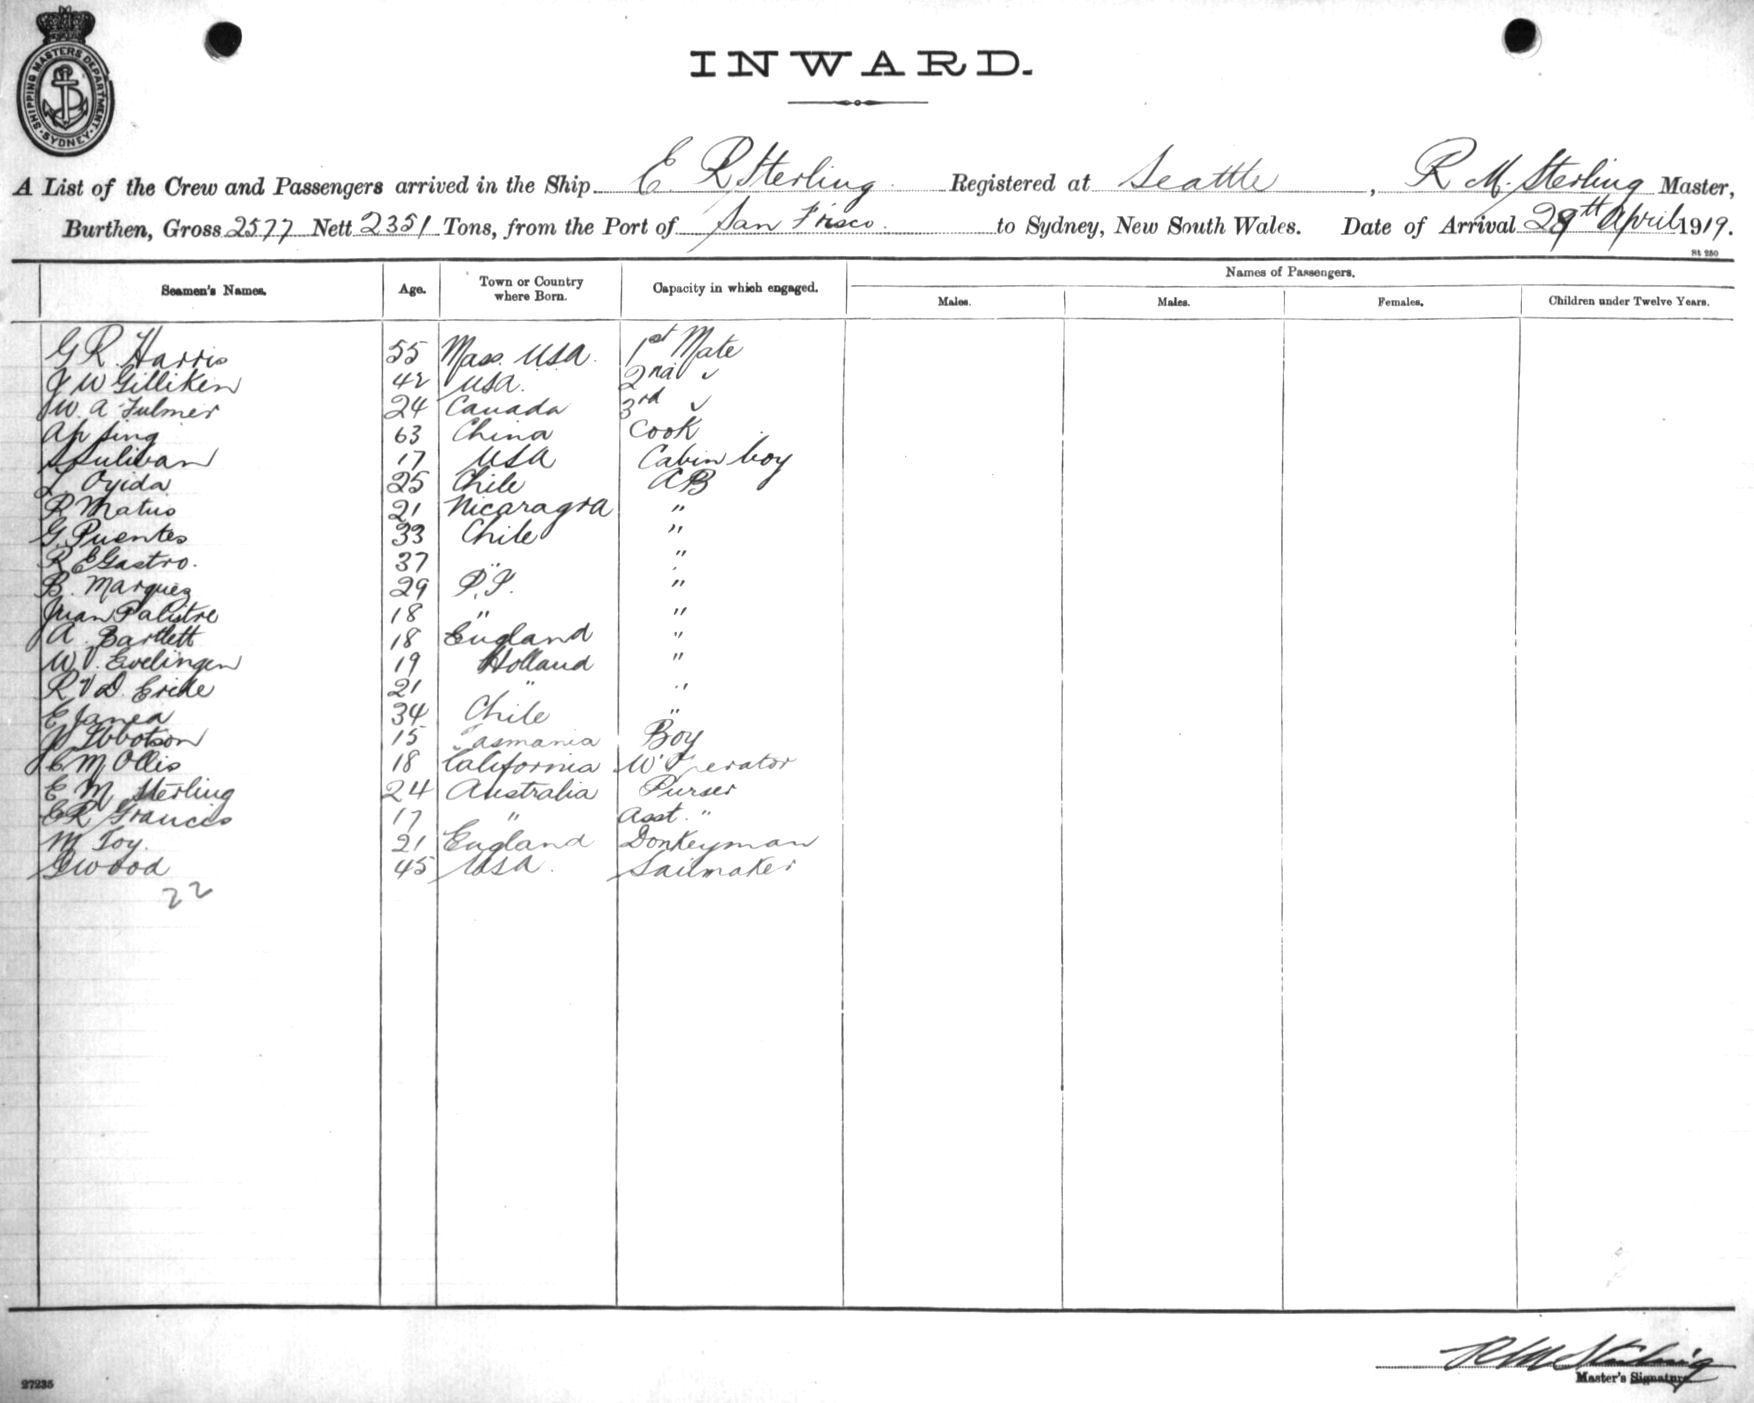 SHIPPING MASTERS DEPARTMENT SYDNEY
INWARD.
A List of the Crew and Passengers arrived in the Ship E R Sterling Registered at Seattle, R M Sterling Master,
Burthen, Gross 2577 Nett 2351 Tons, from the Port of San Frisco to Sydney, New South Wales. Date of Arrival 29th April 1919.
St 280
Seamen's Names. Age. Town or Country where Born. Capacity in which engaged. Names of Passengers.
Males. Males. Females. Children under Twelve Years.
G R Harris 55 Mass. USA. 1st Mate
J W Gilliken 42 USA. 2nd "
W. A Fulmer 24 Canada 3rd "
Ah Sing 63 China Cook
S Sulivan 17 USA Cabin boy
L Oyida 25 Chile AB
R Matus 21 Nicaragra "
G. Puentes 33 Chile "
R E Gastro. 37 " "
B. Marquez 29 P.I. "
Juan Palistre 18 " "
A Bartlett 18 England "
W V. Evelingen 19 Holland "
R V D. Ericke 21 " "
E Janea 34 Chile "
Ibbotson 15 Tasmania Boy
C M Ollis 18 California W Operator
E M Sterling 24 Australia Purser
E R Francis 17 " Asst. "
M Toy. 21 England Donkeyman
G Wood 45 USA. Sailmaker
22
R M Sterling
Master's Signature
27235